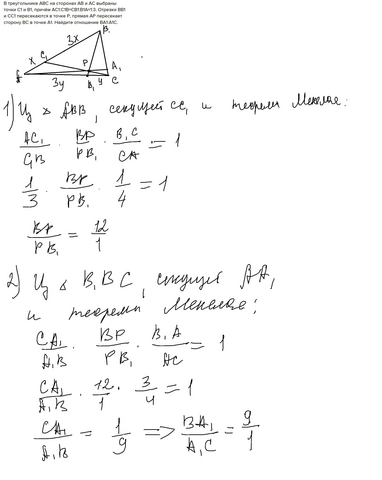 В треугольнике ABC на сторонах AB и AC выбраны
точки C1 и B1, причём AC1:C1B=CB1:B1A=1:3. Отрезки BB1
и CC1 пересекаются в точке P, прямая AP пересекает
сторону BC в точке A1. Найдите отношение BA1:A1C.
B
3x
x C₁
P A₁
3y B₁ y C
1) Из △ ABB₁, секущей CC₁ и теоремы Менелая:
AC₁/C₁B · BP/PB₁ · B₁C/CA = 1
1/3 · BP/PB₁ · 1/4 = 1
BP/PB₁ = 12/1
2) Из △ B₁BC, секущей AA₁
и теоремы Менелая:
CA₁/A₁B · BP/PB₁ · B₁A/AC = 1
CA₁/A₁B · 12/1 · 3/4 = 1
CA₁/A₁B = 1/9 => BA₁/A₁C = 9/1